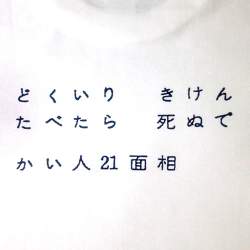 どくいり きけん
たべたら 死ぬで
かい人21面相